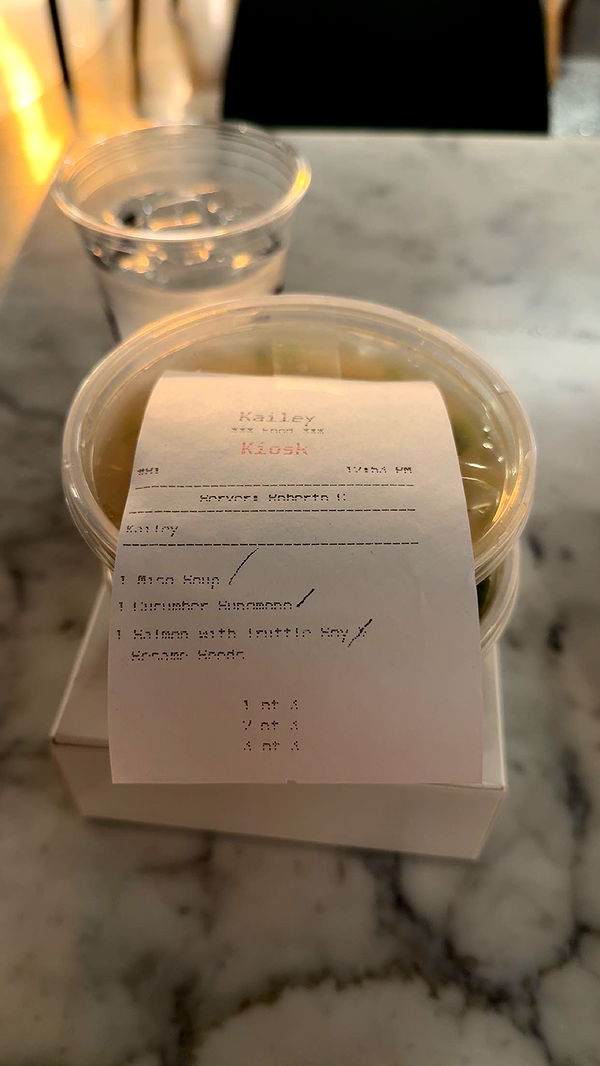 Kailey
*** Food ***
Kiosk
#81 12:53 PM
Server: Roberto C
Kailey
1 Miso Soup
1 Cucumber Sunomono
1 Salmon with Truffle Soy &
Sesame Seeds
1 of 3
2 of 3
3 of 3